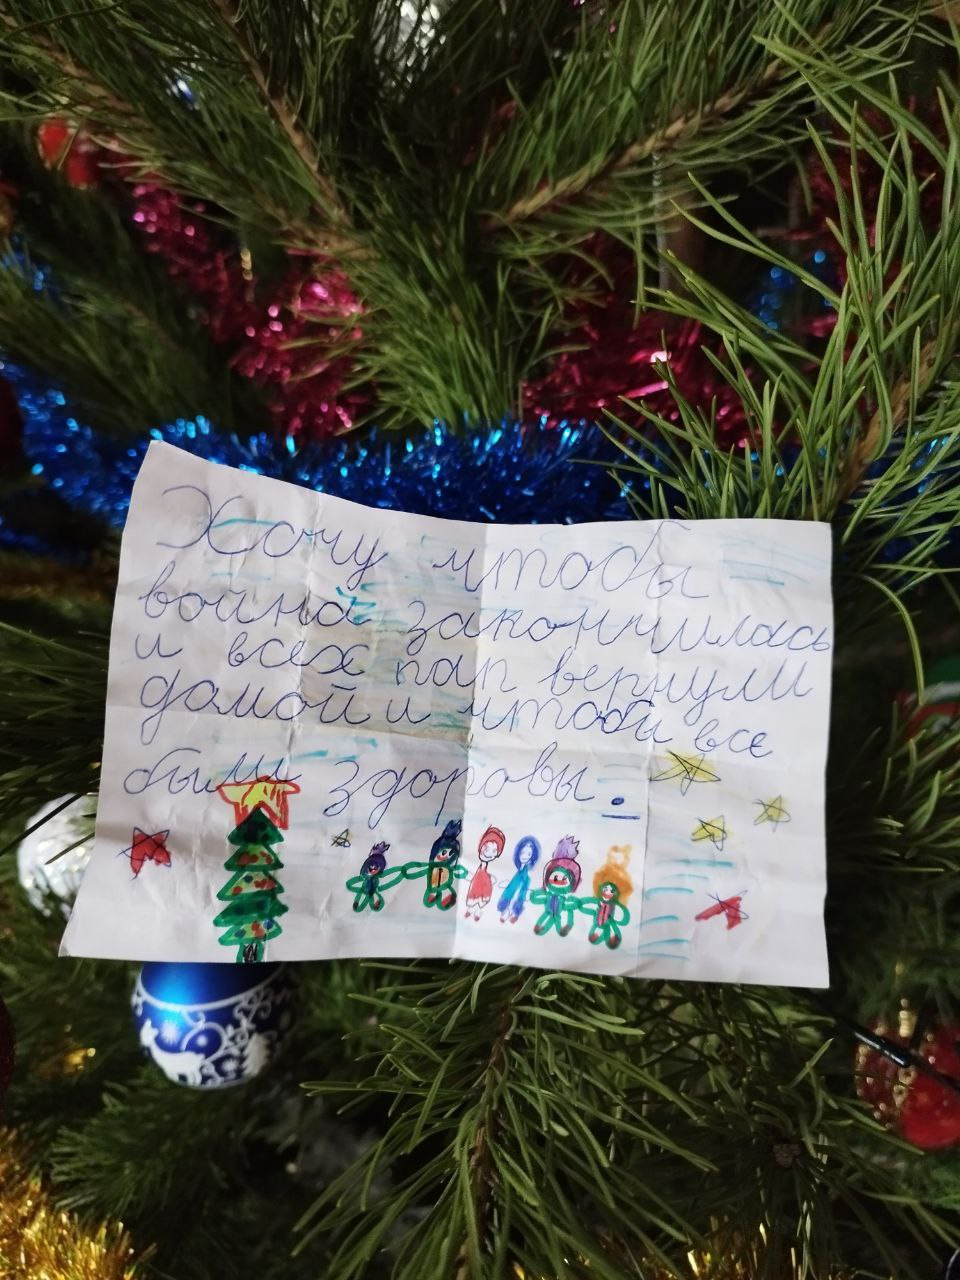 Хочу чтобы
война закончилась
и всех пап вернули
домой и чтобы все
были здоровы.